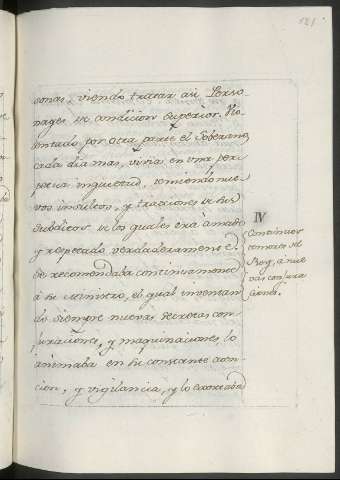 121
sonas, viendo tratar asi Perso
nages de condicion superior. Vio
lentado por otra parte el Soberano
cada dia mas, vivia en una per
petua inquietud, temiendo nue
vos insultos, y traiciones de sus
subditos de los quales era amado
y respetado verdaderamente.
Se recomendaba continuamente
á su Ministro, el qual inventan
do siempre nuevas secretas con
juraciones, y maquinaciones, lo
animaba en su constante aten
cion, y vigilancia, y lo exortaba
IV
Continuos
temores del
Rey, á nue
vas conjura
ciones.